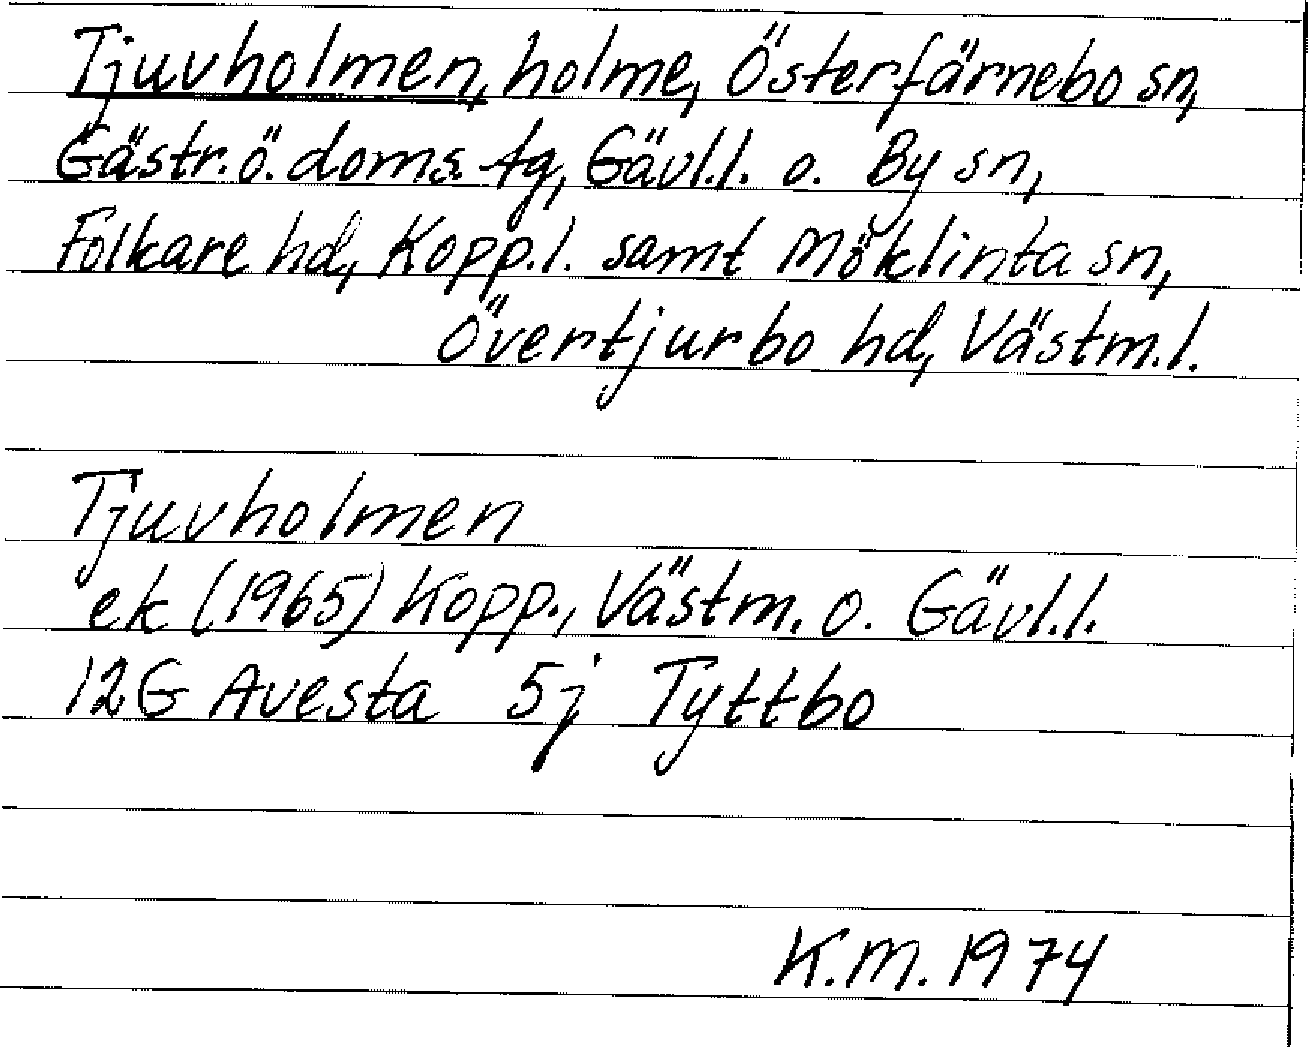 Tjuvholmen, holme, Österfärnebo sn,
Gästr. ö. doms. tg, Gävl.l. o. By sn,
Folkare hd, Kopp.l. samt Möklinta sn,
Övertjurbo hd, Västm.l.
Tjuvholmen
ek (1965) Kopp., Västm. o. Gävl.l.
12G Avesta 5j Tyttbo
K.M. 1974